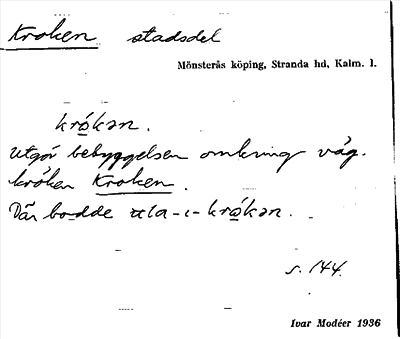 Kroken stadsdel
Mönsterås köping, Stranda hd, Kalm. l.
krǫ́kən.
Utgör bebyggelsen omkring väg-
kröken Kroken.
Där bodde ula-ı-krǫ́kən.
s. 144.
Ivar Modéer 1936